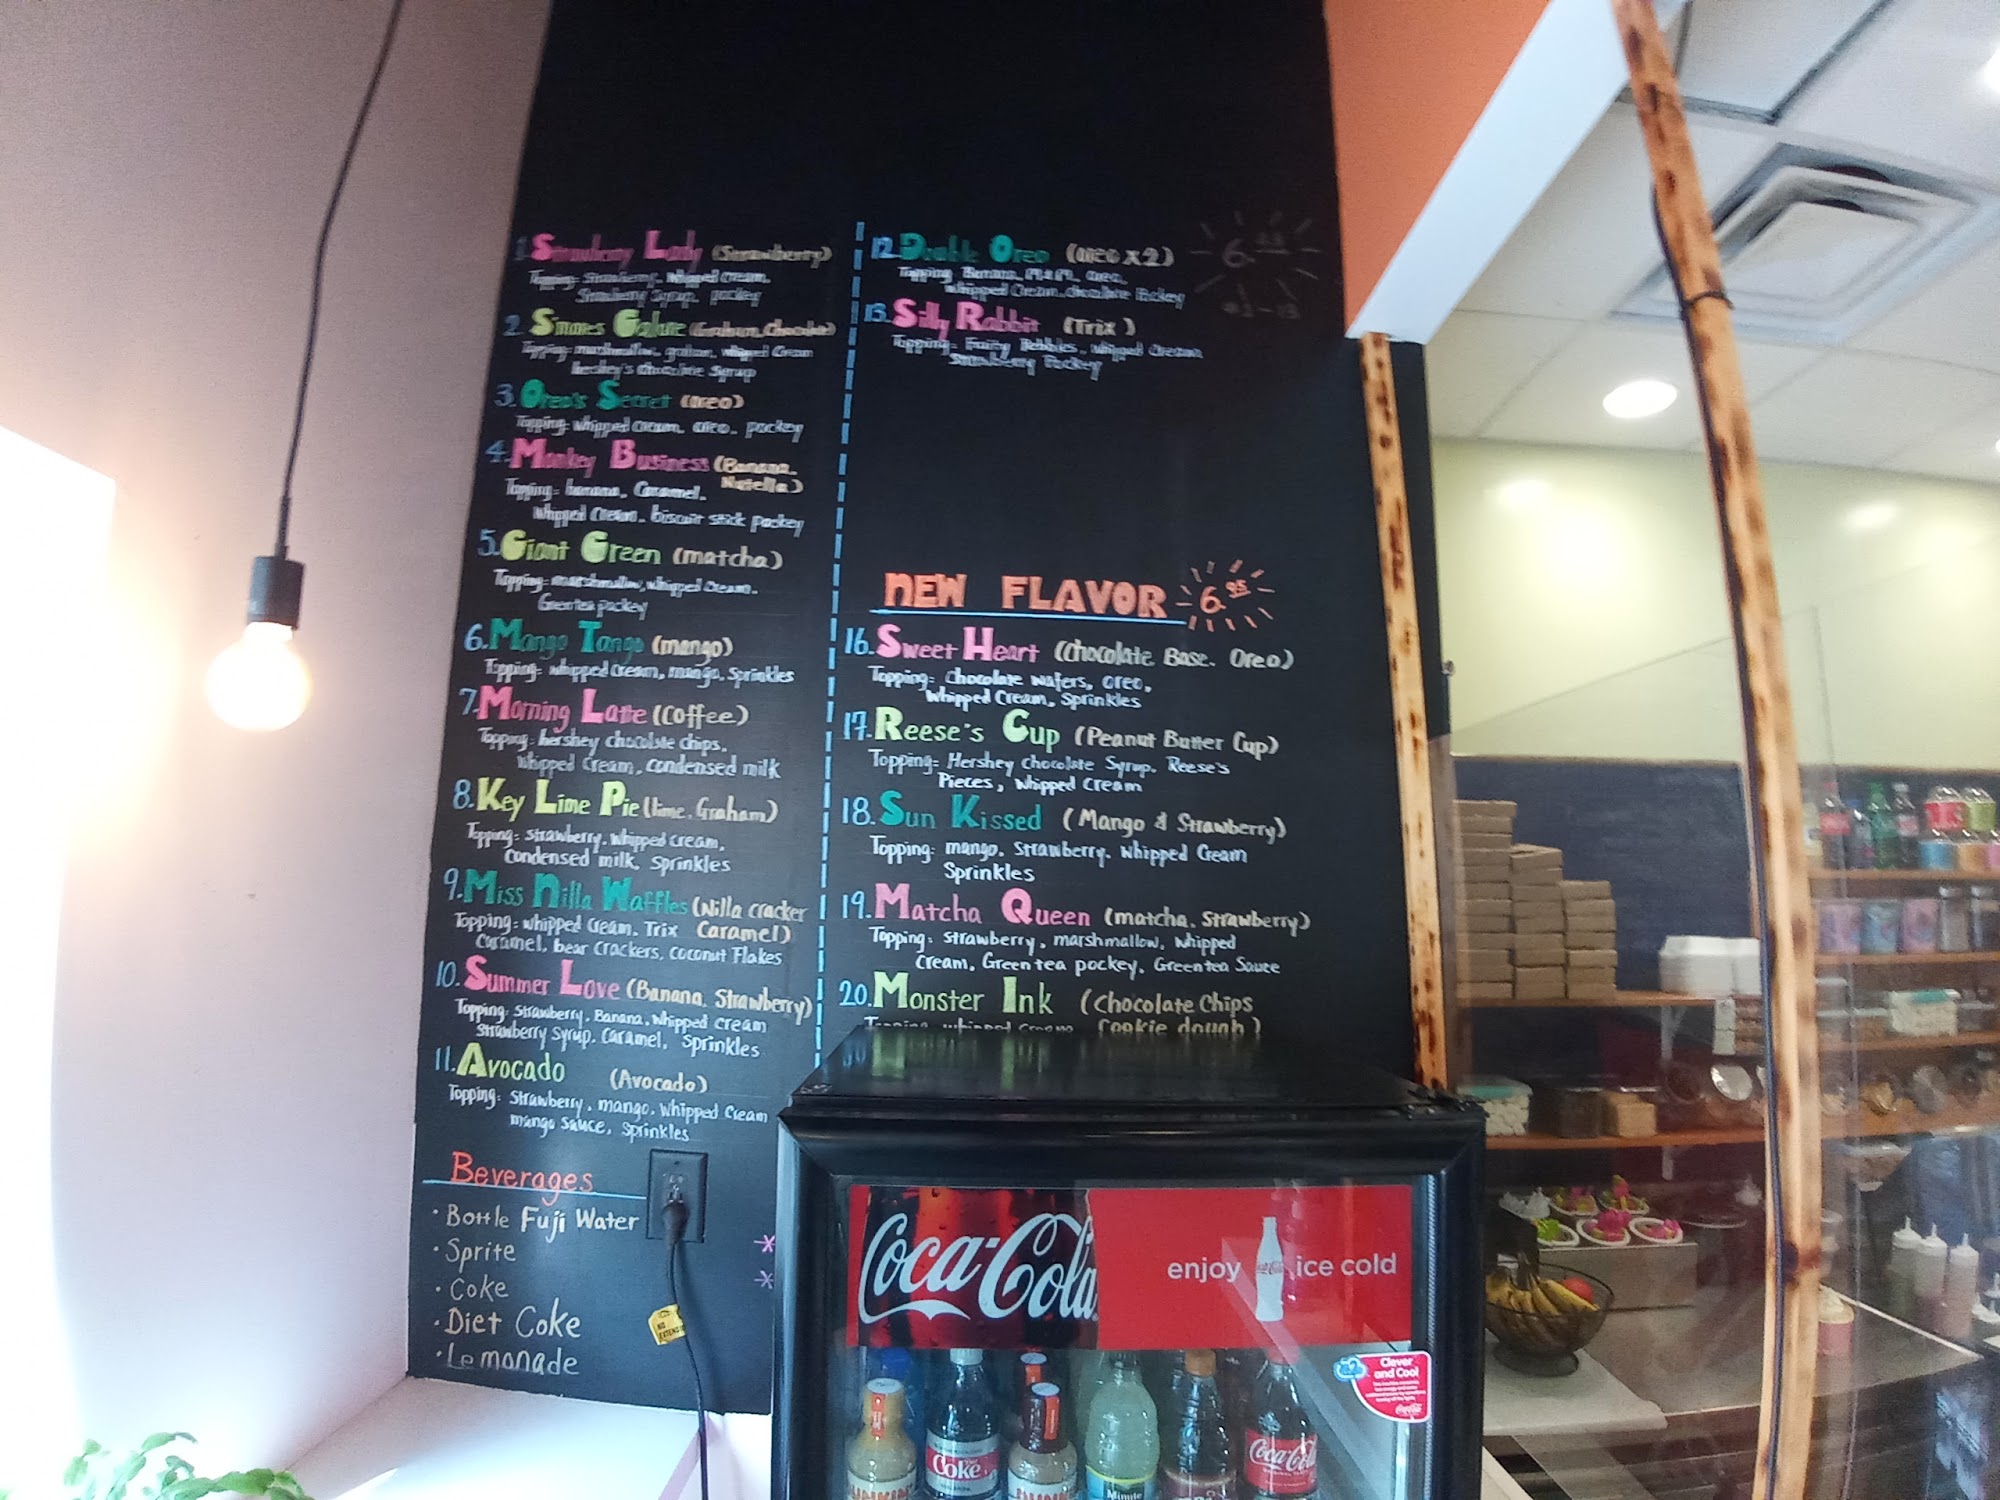 1. Strawberry Lady (Strawberry)
Topping: Strawberry, Whipped Cream,
Strawberry Syrup, pockey
2. Smores Galore (Graham, Chocolate)
Topping: marshmallow, graham, whipped Cream
hershey's Chocolate Syrup
3. Oreo's Secret (oreo)
Topping: whipped Cream, oreo, pockey
4. Monkey Business (Banana,
Nutella)
Topping: banana, Caramel,
Whipped Cream, biscuit stick pockey
5. Giant Green (matcha)
Topping: marshmallow, whipped cream,
Green tea pockey
6. Mango Tango (mango)
Topping: whipped cream, mango, Sprinkles
7. Morning Latte (Coffee)
Topping: hershey chocolate chips,
Whipped Cream, condensed milk
8. Key Lime Pie (lime, Graham)
Topping: Strawberry, Whipped cream,
Condensed milk, Sprinkles
9. Miss Nilla Waffles (Nilla cracker
Caramel)
Topping: whipped Cream, Trix
Caramel, bear Crackers, coconut Flakes
10. Summer Love (Banana, Strawberry)
Topping: Strawberry, Banana, Whipped Cream
Strawberry Syrup, Caramel, Sprinkles
11. Avocado (Avocado)
Topping: Strawberry, mango, Whipped Cream
mango Sauce, Sprinkles
Beverages
• Bottle Fuji Water
• Sprite
• Coke
• Diet Coke
• Lemonade
12. Double Oreo (oreo x 2)
Topping: Banana, Oreo,
Whipped Cream, chocolate Pockey
13. Silly Rabbit (Trix)
Topping: Fruity Pebbles, Whipped Cream
Strawberry Pockey
NEW FLAVOR 6.95
16. Sweet Heart (Chocolate Base, Oreo)
Topping: Chocolate Wafers, Oreo,
Whipped Cream, Sprinkles
17. Reese's Cup (Peanut Butter Cup)
Topping: Hershey Chocolate Syrup, Reese's
Pieces, Whipped Cream
18. Sun Kissed (Mango & Strawberry)
Topping: mango, Strawberry, Whipped Cream
Sprinkles
19. Matcha Queen (matcha, Strawberry)
Topping: Strawberry, marshmallow, Whipped
Cream, Green tea pockey, Green tea Sauce
20. Monster Ink (Chocolate Chips
Cookie dough)
Topping: whipped Cream
Coca-Cola
enjoy ice cold
Clever
and Cool
Coke
Coca-Cola
Minute